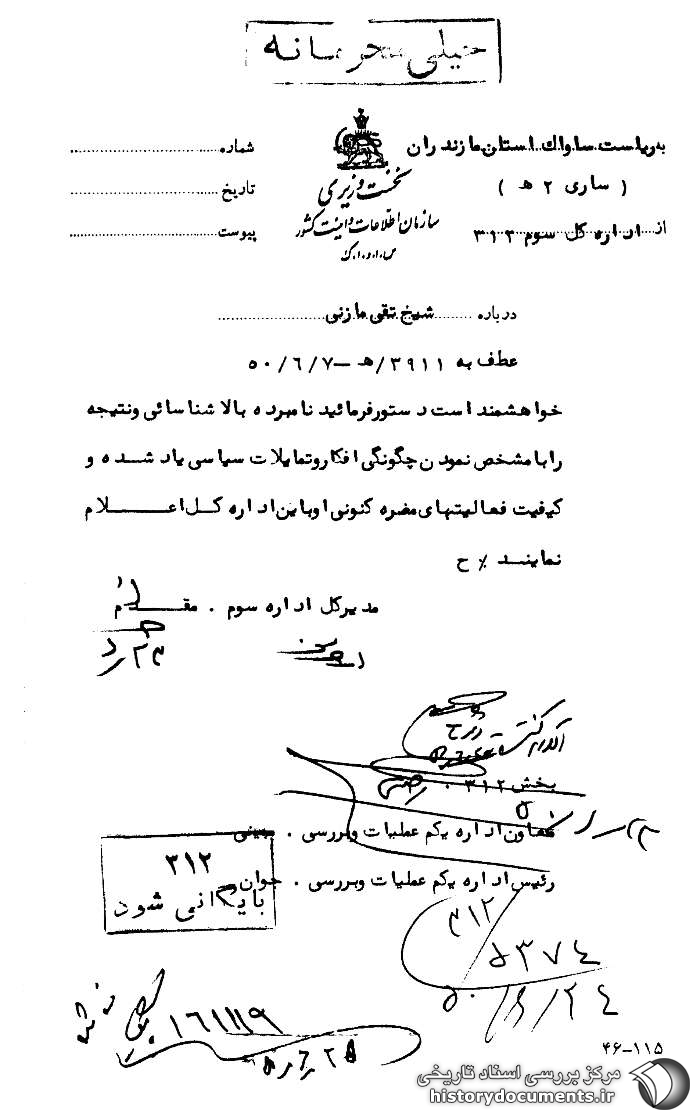 خیلی محرمانه
به ریاست ساواک استان مازندران
( ساری ۲ ه )
از اداره کل سوم ۳۱۲
نخست وزیری
سازمان اطلاعات و امنیت کشور
س.ا.و.ا.ک
شماره
تاریخ
پیوست
درباره شیخ تقی مازنی
عطف به ۳۹۱۱/ه‍ – ۵۰/۶/۷
خواهشمند است دستور فرمائید نامبرده بالا شناسائی و نتیجه
را با مشخص نمودن چگونگی افکار و تمایلات سیاسی یاد شده و
کیفیت فعالیتهای مضره کنونی او باین اداره کل اعلام
نمایند ٪ ح
مدیرکل اداره سوم . مقدم
بخش ۳۱۲ .
معاون اداره یکم عملیات و بررسی .
رئیس اداره یکم عملیات و بررسی . جوان
۳۱۲
بایگانی شود
۳۱۲
۵۳۷۴
۵۰/۶/۲۴
۴۶-۱۱۵
مرکز بررسی اسناد تاریخی
historydocuments.ir